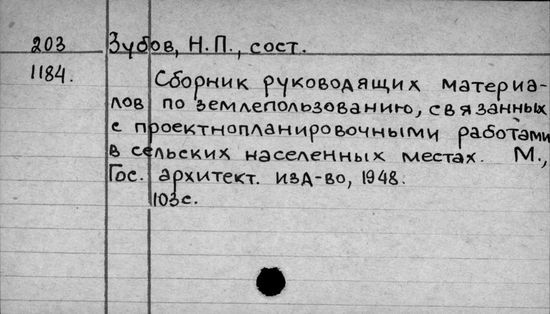 203 Зубов, Н.П., сост.
1184.
Сборник руководящих материа-
лов по землепользованию, связанных
с проектнопланировочными работами
в сельских населенных местах. М.,
Гос. архитект. изд-во, 1948.
103с.